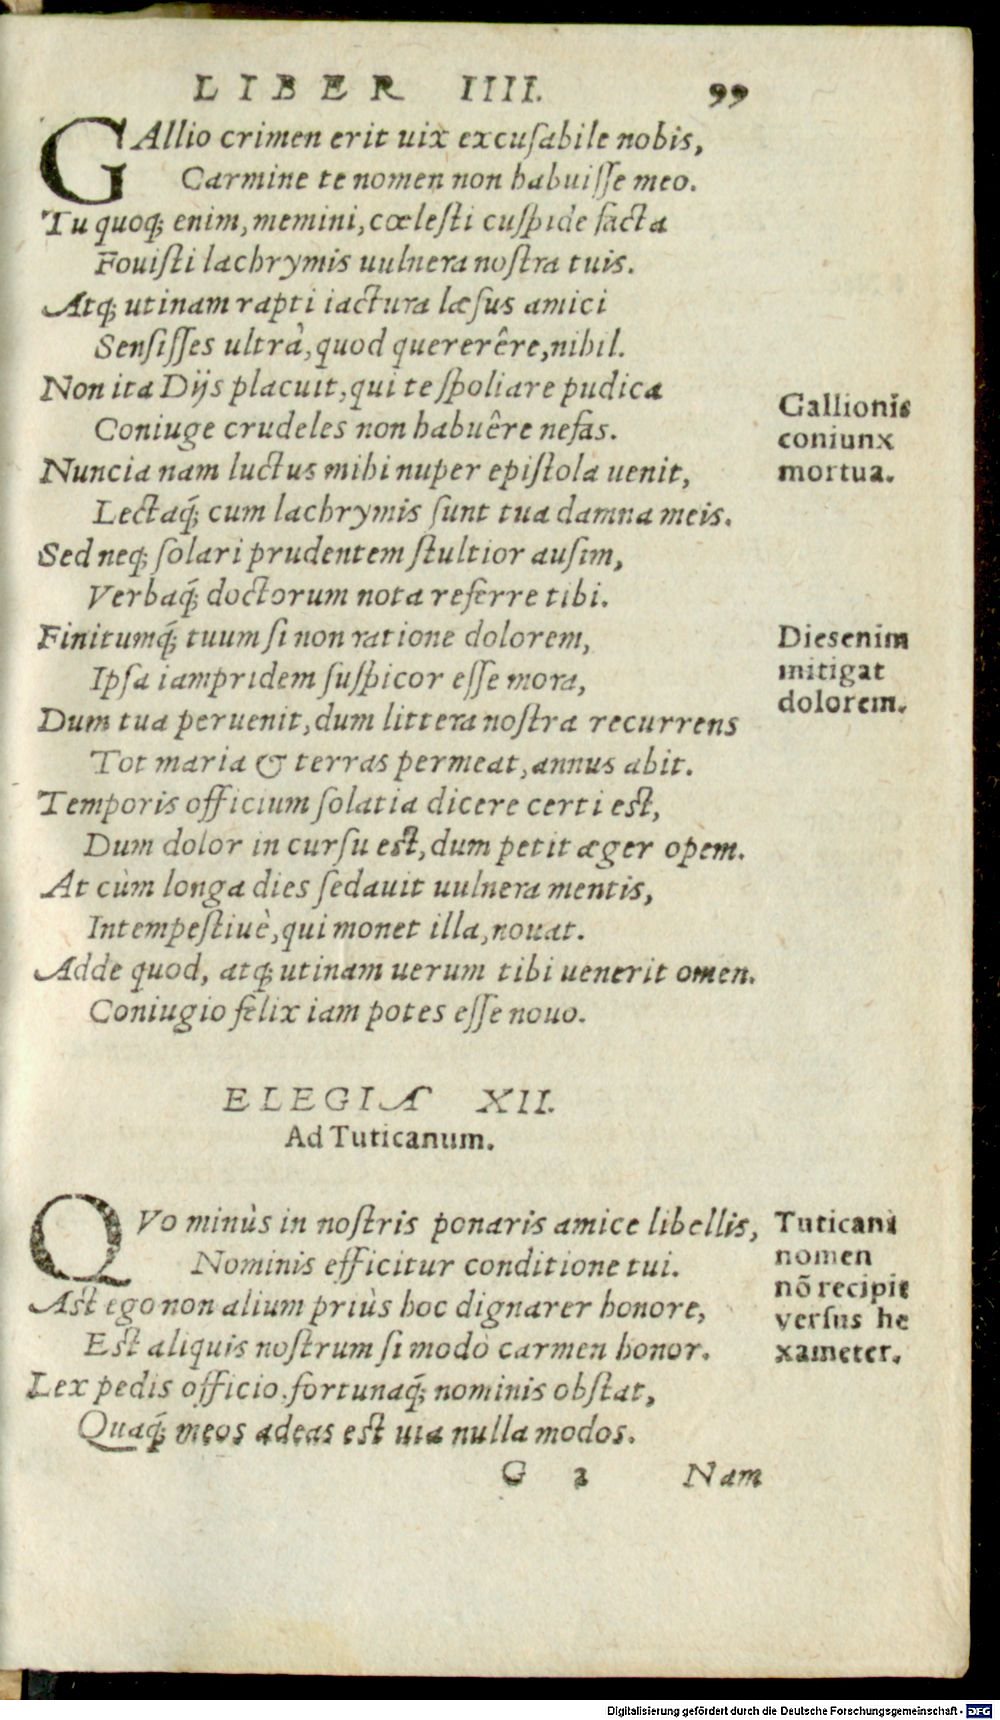 LIBER IIII. 99
GAllio crimen erit uix excuſabile nobis,
Carmine te nomen non habuiſſe meo.
Tu quoq; enim, memini, cœleſti cuſpide facta
Fouiſti lachrymis uulnera noſtra tuis.
Atq; utinam rapti iactura læſus amici
Senſiſſes ultrà, quod quererêre, nihil.
Non ita Dijs placuit, qui te ſpoliare pudica
Coniuge crudeles non habuêre nefas.
Gallionis
coniunx
mortua.
Nuncia nam luctus mihi nuper epiſtola uenit,
Lectaq́; cum lachrymis ſunt tua damna meis.
Sed neq; ſolari prudentem ſtultior auſim,
Verbaq́; doctorum nota referre tibi.
Finitumq́; tuum ſi non ratione dolorem,
Ipſa iampridem ſuſpicor eſſe mora,
Dies enim
mitigat
dolorem.
Dum tua peruenit, dum littera noſtra recurrens
Tot maria & terras permeat, annus abit.
Temporis officium ſolatia dicere certi eſt,
Dum dolor in curſu eſt, dum petit æger opem.
At cùm longa dies ſedauit uulnera mentis,
Intempeſtiuè, qui monet illa, nouat.
Adde quod, atq; utinam uerum tibi uenerit omen.
Coniugio felix iam potes eſſe nouo.
ELEGIA XII.
Ad Tuticanum.
QVo minùs in noſtris ponaris amice libellis,
Nominis efficitur conditione tui.
Aſt ego non alium priùs hoc dignarer honore,
Eſt aliquis noſtrum ſi modò carmen honor.
Tuticani
nomen
nõ recipit
verſus he
xameter.
Lex pedis officio, fortunaq́; nominis obſtat,
Quaq́; meos adeas eſt uia nulla modos.
G 2 Nam
Digitalisierung gefördert durch die Deutsche Forschungsgemeinschaft - DFG